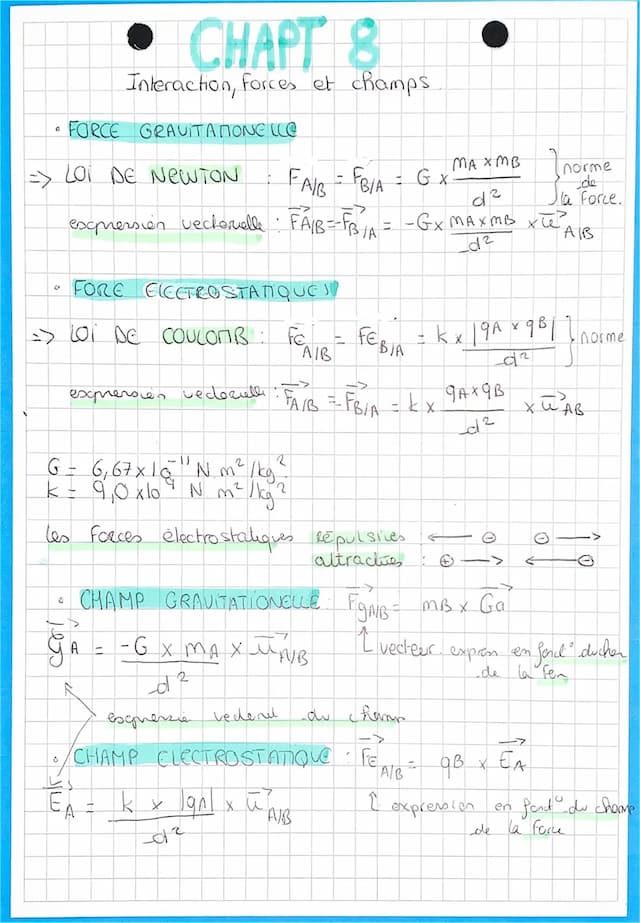 CHAPT 8
Interaction, forces et champs
• FORCE GRAVITATIONELLE
=> LOI DE NEWTON : F A/B = F B/A = G × mA × mB / d² } norme de la force.
expression vectorielle : F→ A/B = -F→ B/A = -G × mA × mB / d² × u→ A/B
• FORE ELECTROSTATIQUES
=> LOI DE COULOMB : Fe A/B = Fe B/A = k × |qA × qB| / d² } norme
expression vectorielle : F→ A/B = -F→ B/A = k × qA × qB / d² × u→ AB
G = 6,67 × 10⁻¹¹ N m²/kg²
k = 9,0 × 10⁹ N m²/kg²
les forces électrostatiques répulsives ← ⊖ ⊖ →
attractives : ⊕ → ← ⊖
• CHAMP GRAVITATIONELLE : Fg→ A/B = mB × Ga→
G→ A = -G × mA / d² × u→ A/B
↑ vecteur expression en fonct° du
de la
du champ
• CHAMP ELECTROSTATIQUE : Fe→ A/B = qB × E→ A
E→ A = k × |qA| / d² × u→ A/B
↑ expression en fonct° du champ
de la force